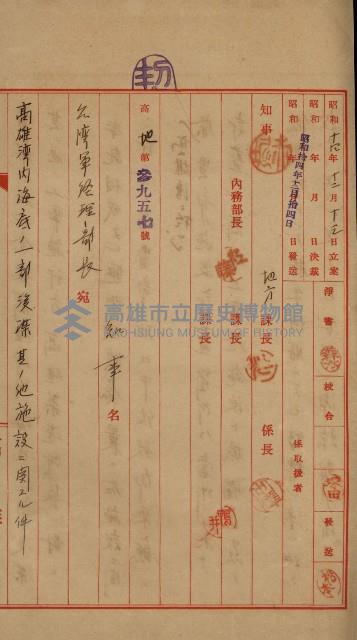 昭和十四年十二月十三日立案
昭和 年 月 日決裁
昭和 年 月 日發送
昭和拾四年十二月拾四日
淨書
校合
發送
係取扱者
知事
內務部長
地方課長
課長
課長
係長
高地第三九五七號
知事名
台灣軍經理部長宛
高雄灣內海底ノ一部浚渫其ノ他施設ニ関スル件
高雄市立歷史博物館
KAOHSIUNG MUSEUM OF HISTORY